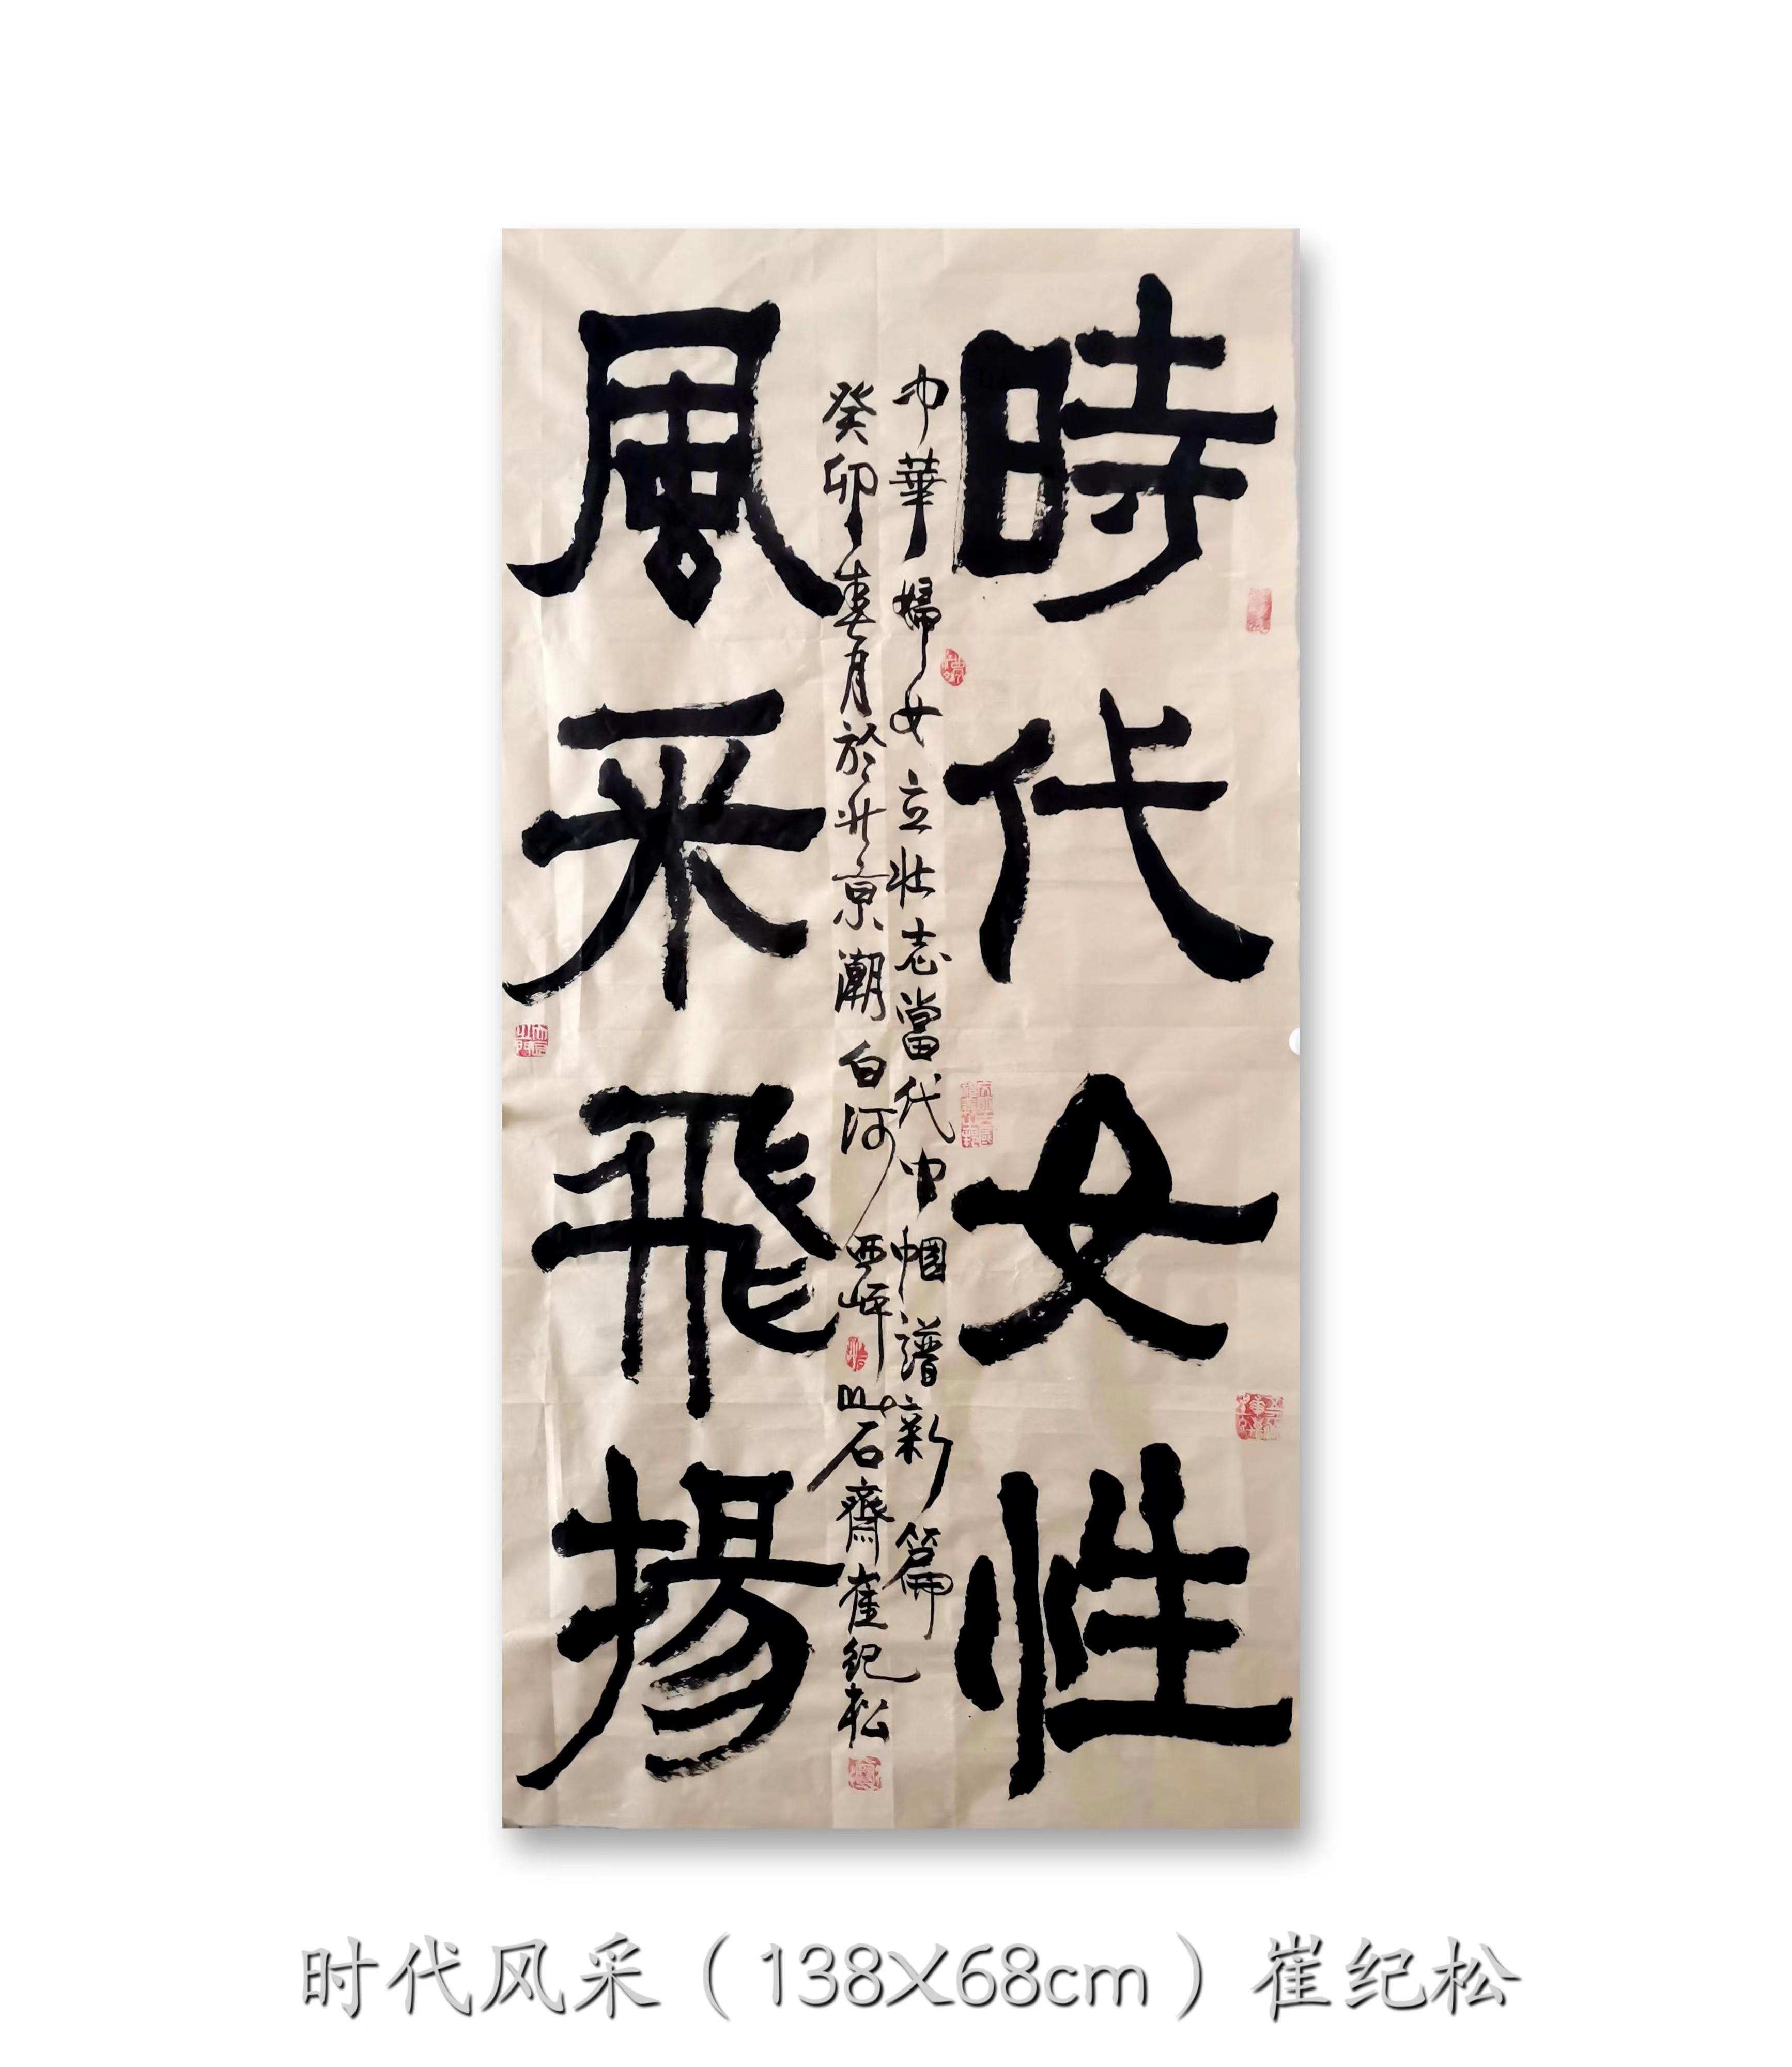 時代女性
風采飛揚
中華婦女立壯志當代巾帼譜新篇
癸卯春月於北京潮白河西岸山石齋崔纪松
时代风采（138X68cm）崔纪松